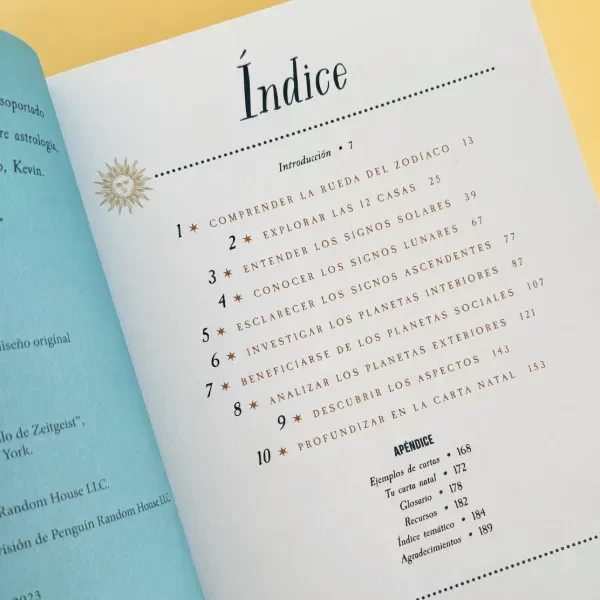 soportado
re astrología,
o, Kevin.
diseño original
lo de Zeitgeist",
York.
Random House LLC.
visión de Penguin Random House LLC
2023
Índice
Introducción • 7
1 * COMPRENDER LA RUEDA DEL ZODÍACO 13
2 * EXPLORAR LAS 12 CASAS 25
3 * ENTENDER LOS SIGNOS SOLARES 39
4 * CONOCER LOS SIGNOS LUNARES 67
5 * ESCLARECER LOS SIGNOS ASCENDENTES 77
6 * INVESTIGAR LOS PLANETAS INTERIORES 87
7 * BENEFICIARSE DE LOS PLANETAS SOCIALES 107
8 * ANALIZAR LOS PLANETAS EXTERIORES 121
9 * DESCUBRIR LOS ASPECTOS 143
10 * PROFUNDIZAR EN LA CARTA NATAL 153
APÉNDICE
Ejemplos de cartas • 168
Tu carta natal • 172
Glosario • 178
Recursos • 182
Índice temático • 184
Agradecimientos • 189